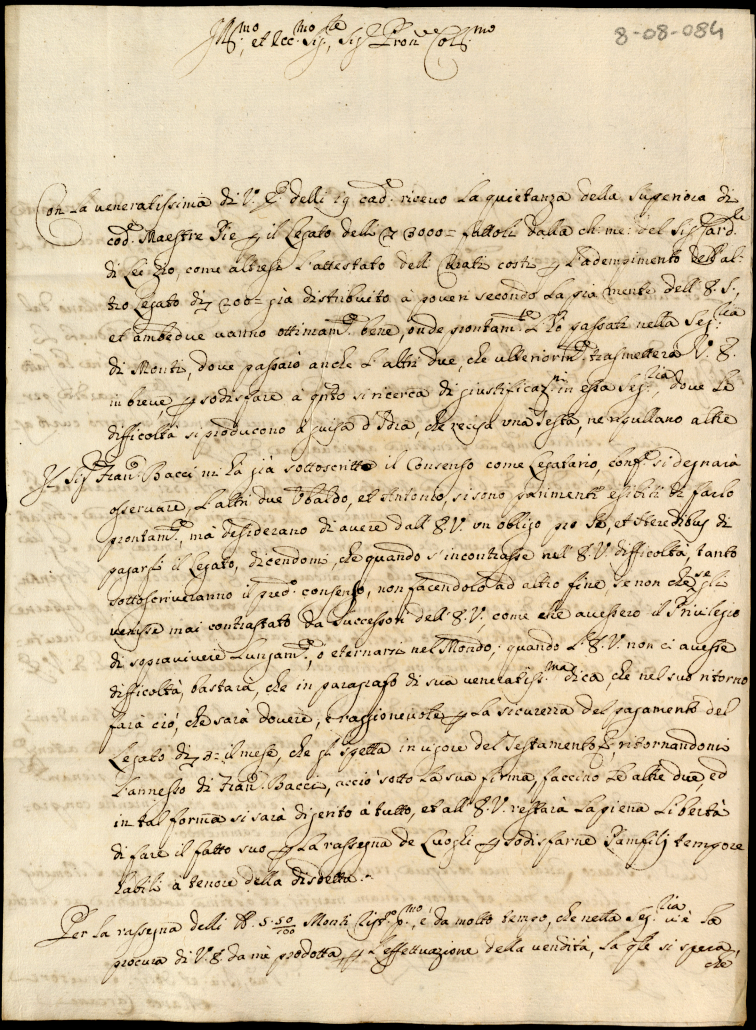 8-08-084
Ill.mo et Ecc.mo Sig.re, Sig.r Pron.e Col.mo
Con la veneratissima di V. E. delli 19 cad.e ricevo la quietanza della Superiora di
cod.e Maestre Pie p il Legato delli 3000= fattoli dalla ch: me: del Sig. Card.le
di Lei Zio, come altresi l'attestato delli Curati costi p l'adempimento dell'al-
tro Legato di 200= già distribuito à poveri secondo la pia mente dell'E. S.,
et ambedue vanno ottimam.te bene, onde prontam.te l'hò passati nella Seg.lia
di Monti, dove passaro anche l'altri due, che ulteriorm.te trasmetterà V. E.
in breve, p sodisfare à qnto si ricerca di giustificaz.ni in essa Seg.lia, dove le
difficoltà si producono à guisa d'Idra, che recisa una Testa, ne ripullano altre
Il Sig. Fran.co Bacci mi hà già sottoscritto il Consenso come Legatario, conf.e si degnarà
osservare, l'altri due Ubaldo, et Antonio, si sono parimenti esibiti di farlo
prontam.te, mà desiderano di avere dall'E.V. un obligo pro Se, et Heredibus di
pagarsi il Legato, dicendomi, che quando s'incontrasse nell'E.V. difficoltà, tanto
sottoscriveranno il pred.o consenso, non facendolo ad altro fine se non che se gli
venisse mai contrastato da Successori dell'E.V., come essi avessero il Privilegio
di sopravivere lungam.te, o eternarsi nel Mondo; quando l'E.V. non ci avesse
difficoltà, bastarà, che in paragrafo di sua veneratiss.ma dica, che nel suo ritorno
farà ciò, che sarà dovere, e raggionevole p la sicurezza del pagamento del
Legato di 3= il mese, che gli spetta in vigore del Testamento, ritornandomi
l'annesso di Fran.co Bacci, acciò sotto la sua firma, faccino le altre due, ed
in tal forma si sarà digerito à tutto, et all'E.V. restarà la piena libertà
di fare il fatto suo p la rassegna de Luoghi p sodisfarne Pamfilj tempore
habili à tenore della disdetta.
Per la rassegna delli 5.50/100 Monti, è da molto tempo, che nella Seg.lia vi è la
procura di V. E. da me prodotta, p l'effettuazione della vendita, la qle si spera,
che